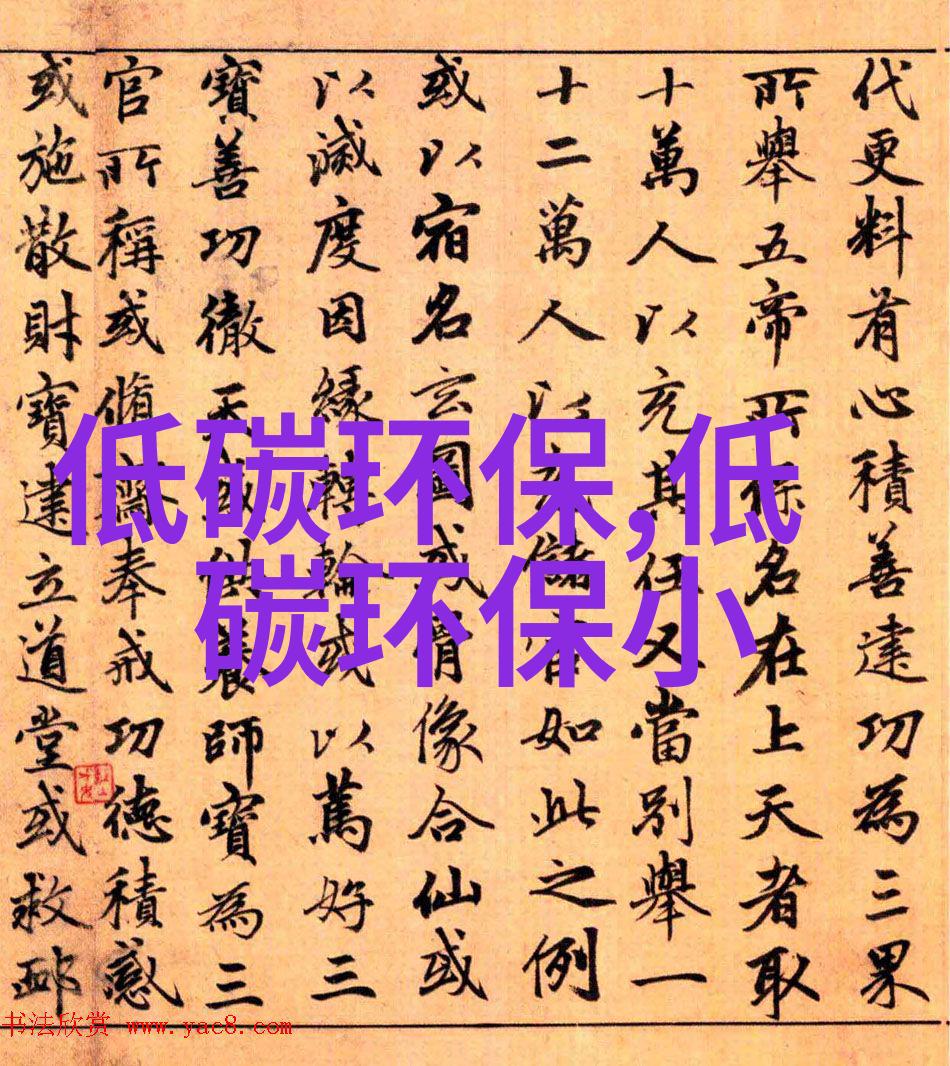 代更料有心積善建功為三果
所舉五帝所保名在上天者取
十萬人以充其任又當別舉一
十二萬人以為儲官如此之例
或以宿名玄圖或骨像合仙或
以滅度因緣轉輪或以篤好三
寶善功徹天或供養師寶為三
官所稱或脩齋奉戒功德積感
或施散財寶建立道堂或救卹
低碳环保,低
碳环保小
书法欣赏 www.yac8.com